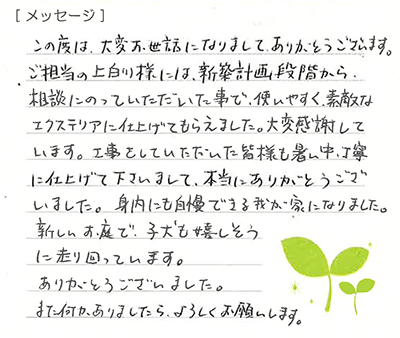 [メッセージ]
この度は、大変お世話になりまして、ありがとうございます。
ご担当の上白川様には、新築計画段階から、
相談にのっていただいた事で、使いやすく、素敵な
エクステリアに仕上げてもらえました。大変感謝して
います。工事をしていただいた皆様も暑い中、丁寧
に仕上げて下さいまして、本当にありがとうござ
いました。身内にも自慢できる我が家になりました。
新しいお庭で、子犬も嬉しそう
に走り回っています。
ありがとうございました。
また何かありましたら、よろしくお願いします。